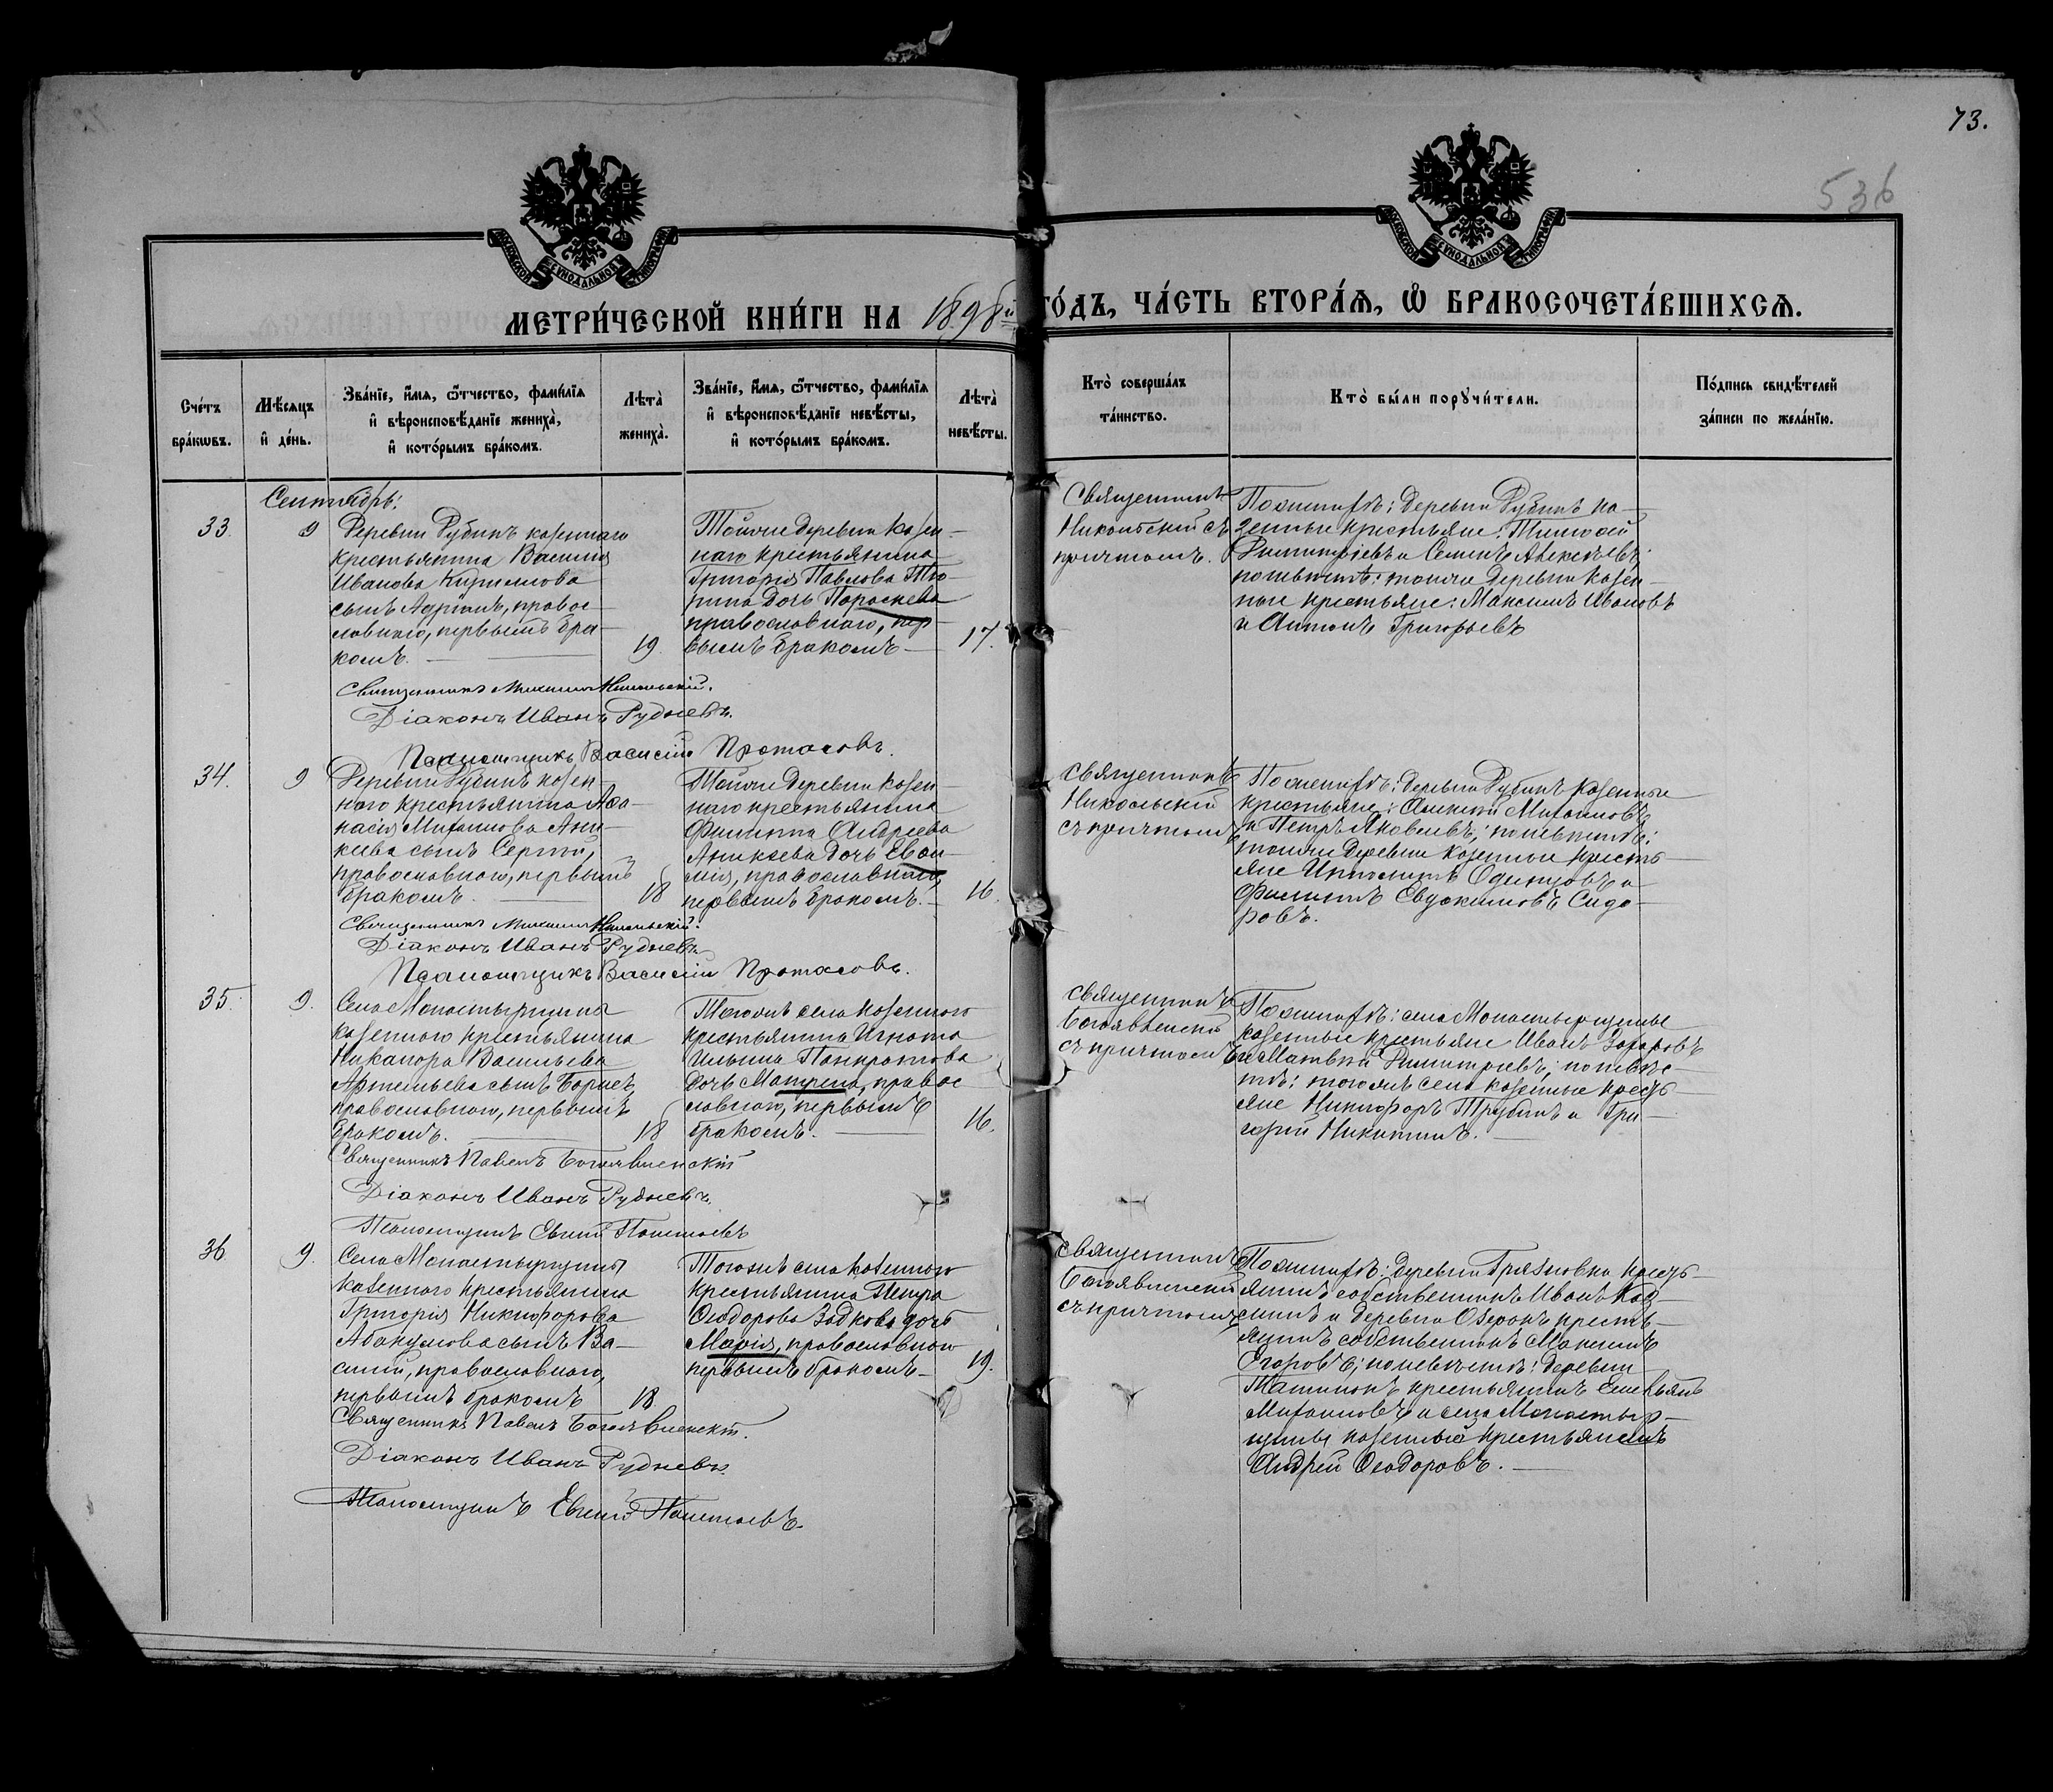 73.
536
МОСКОВСКОЙ СѴНОДАЛЬНОЙ ТИПОГРАФІИ
МОСКОВСКОЙ СѴНОДАЛЬНОЙ ТИПОГРАФІИ
МЕТРИ́ЧЕСКОЙ КНИ́ГИ НА 1898й ГО́ДЪ, ЧА́СТЬ ВТОРА́Ѧ, Ѽ БРАКОСОЧЕТА́ВШИХСѦ.
Сче́тъ
бра́кѡвъ.
Мѣ́сяцъ
и҆ де́нь.
Зва́нїе, и҆́мѧ, ѻ҆́тчество, фами́лїѧ
и҆ вѣроисповѣ́данїе жениха̀,
и҆ кото́рымъ бра́комъ.
Лѣта̀
жениха̀.
Зва́нїе, и҆́мѧ, ѻ҆́тчество, фами́лїѧ
и҆ вѣроисповѣ́данїе невѣ́сты,
и҆ кото́рымъ бра́комъ.
Лѣта̀
невѣ́сты.
Кто̀ соверша́лъ
та́инство.
Кто̀ бы́ли порꙋчи́тели.
По́дпись свидѣ́телей
за́писи по жела́нїю.
Сентябрь:
33.
9
Деревни Рубинъ казеннаго
крестьянина Василия
Иванова Кирилова
сынъ Адріанъ, правос-
лавнаго, первымъ бра-
комъ.
19.
Тойже деревни казен-
наго крестьянина
Григорія Павлова Тю-
рина дочь Параскева
православнаго, пер-
вымъ бракомъ
17.
Священникъ
Никольскій съ
причтомъ.
По женихѣ: деревни Рубинъ ка-
зенные крестьяне: Тимофей
Димитріевъ и Семенъ Алексѣевъ;
по невѣстѣ: тойже деревни казен-
ные крестьяне: Максимъ Ивановъ
и Антонъ Григорьевъ
Священникъ Михаилъ Никольскій.
Діаконъ Иванъ Рудневъ.
Псаломщикъ Василій Протасовъ.
34.
9
Деревни Рубинъ казен-
наго крестьянина Аѳа-
насія Михаилова Ани-
кеева сынъ Сергій,
православнаго, первымъ
бракомъ.
18
Тойже деревни казен-
наго крестьянина
Филиппа Андреева
Аникеева дочь Евѳи-
мія, православнаго,
первымъ бракомъ.
16.
Священникъ
Никольскій
съ причтомъ
По женихѣ: деревни Рубинъ казенные
крестьяне: Алексѣй Михаиловъ
и Петръ Яковлевъ; по невѣстѣ:
тойже деревни казенные кресть-
яне Ипполитъ Одинцовъ и
Филиппъ Евдокимовъ Сидо-
ровъ.
Священникъ Михаилъ Никольскій.
Діаконъ Иванъ Рудневъ.
Псаломщикъ Василій Протасовъ.
35.
9.
Села Монастырщины
казеннаго крестьянина
Никанора Васильева
Артемьева сынъ Борисъ,
православнаго, первымъ
бракомъ.
18
Тогожъ села казеннаго
крестьянина Игната
Ильина Панкратова
дочь Матрена, правос
лавнаго, первымъ
бракомъ.
16.
Священникъ
Богоявленскій
съ причтомъ
По женихѣ: села Монастырщины
казенные крестьяне Иванъ Захаровъ
и Матвѣй Димитріевъ; по невѣс-
тѣ: тогожъ села казенные кресть-
яне Никифоръ Трубинъ и Гри-
горій Никитинъ.
Священникъ Павелъ Богоявленскій
Діаконъ Иванъ Рудневъ.
Псаломщикъ
36
9.
Села Монастырщины
казеннаго крестьянина
Григорія Никифорова
Абакумова сынъ Ва-
силій, православнаго,
первымъ бракомъ
18
Тогожъ села казеннаго
крестьянина Петра
Ѳеодорова дочь
Марія, православнаго
первымъ бракомъ
19.
Священникъ
Богоявленскій
съ причтомъ
По женихѣ: деревни Грязновки кресть-
янинъ собственникъ Иванъ
и деревни Озерокъ кресть-
янинъ собственникъ Максимъ
Егоровъ; по невѣстѣ: деревни
крестьянинъ Емельянъ
Михаиловъ и села Монастыр-
щины казенный крестьянинъ
Андрей Ѳеодоровъ.
Священникъ Павелъ Богоявленскій.
Діаконъ Иванъ Рудневъ.
Псаломщикъ